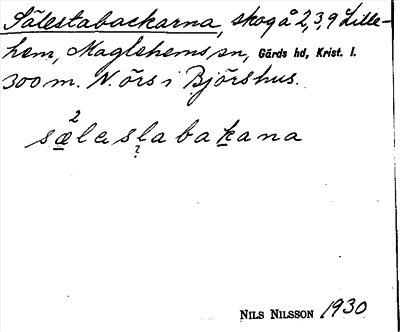 Sälestabackarna, skog å 2, 3, 9 Lille-
hem, Maglehems sn, Gärds hd, Krist. l.
300 m. N. örs i Björshus.
2
sælaslabakana
?
NILS NILSSON 1930